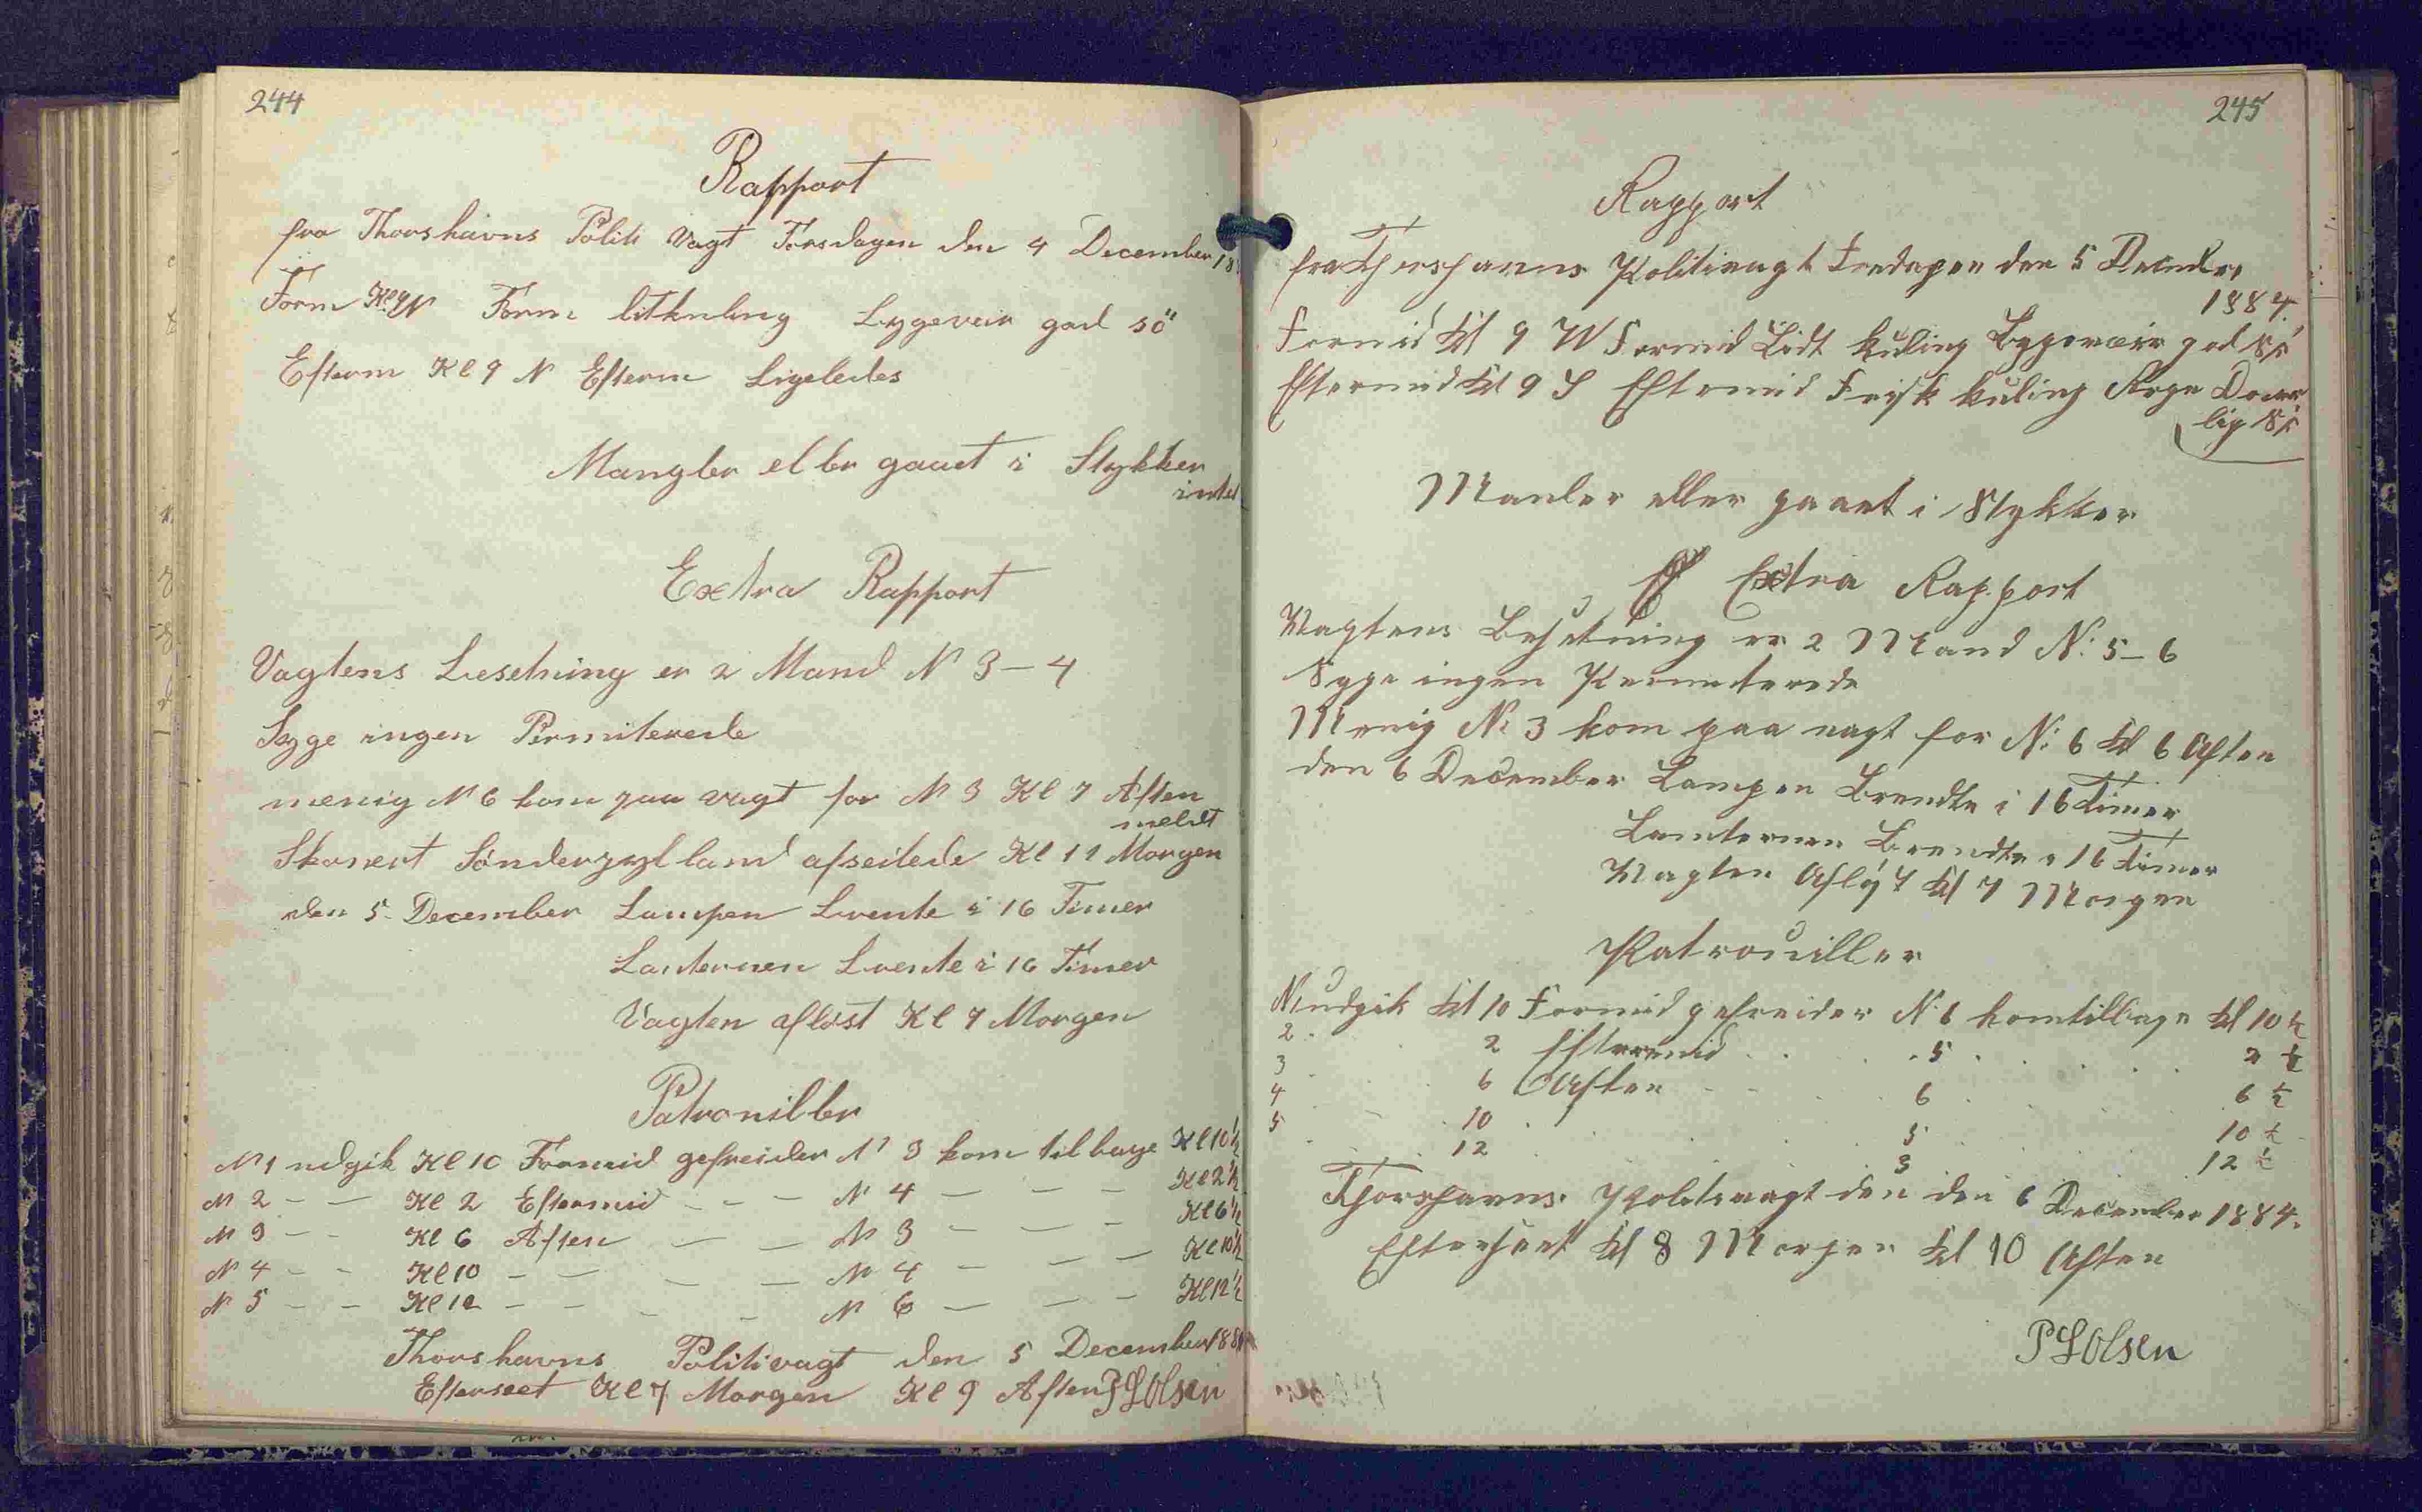 244
Rapport
fra Thorshavns Politi Vagt Torsdagen den 4 December 18
Form Kl 9 N Form litkuling Lygeveir god sö
Efterm Kl 9 N Efterm Ligeledes
Mangler eller gaaet i Stykker
intet
Extra Rapport
Vagtens Besetning er 2 Mand N 3 – 4
Syge ingen Permiterede
menig N 6 kom paa vagt for N 3 Kl 7 Aften
meldt
Skonert Sønderjylland afseilede Kl 11 Morgen
den 5 December Lampen brente i 16 Timer
Lanternen brente i 16 Timer
Vagten afløst Kl 7 Morgen
Patrouiller
N 1 udgik Kl 10 Formid gefreider N 3 kom tilbage Kl 10 ½
N 2 – – Kl 2 Eftermid – – – N 4 – – – Kl 2 ½
N 3 – – Kl 6 Aften – – N 3 – – – Kl 6 ½
N 4 – – Kl 10 – – – – N 4 – – – Kl 10 ½
N 5 – – Kl 12 – – – – N 6 – – – Kl 12 ½
Thorshavns Politivagt den 5 December 188
Efterseet Kl 7 Morgen Kl 9 Aften P L Olsen
245
Rapport
fra Thorshavns Politivagt Fredagen den 5 Decmber
1884.
Formid Kl 9 W Formid Lidt kuling Lygeveir god Sö
Eftermid Kl 9 S Eftermid Frisk kuling Regn Daar
lig Sö
Manler eller gaaet i Stykker
Extra Rapport
Vagtens Besetning er 2 Mand N: 5 – 6
Syge ingen Permiterede
Menig N: 3 kom paa vagt for N: 6 Kl 6 Aften
den 6 December Lampen Brendte i 16 Timer
Lanternen Brendte i 16 Timer
Vagten Afløst Kl 7 Morgen
Patrouiller
N 1 udgik Kl 10 Formid gefreider N: 6 kom tilbage Kl 10 ½
2 . . 2 Eftermid . . . 5 . . . 2 ½
3 . . 6 Aften . . 6 . . . 6 ½
4 . . 10 . . . 5 . . . 10 ½
5 . . 12 . . . 3 . . . 12 ½
Thorshavns Politivagt den den 6 December 1884.
Efterseet Kl 8 Morgen Kl 10 Aften
P L Olsen